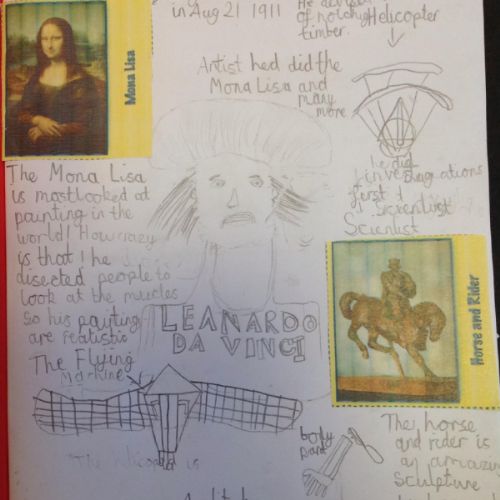 in Aug 21 1911
He
of notchy
timber.
Helicopter
Mona Lisa
Artist hed did the
Mona Lisa and
many
more
The Mona Lisa
is mostlooked at
painting in the
world! How crazy
is that! he
disected people to
look at the mucles
so his painting
are realistic
he did
first
Scientist
Scientist
LEANARDO
DA VINCI
Horse and Rider
The Flying
Machine
The helicopter is
body
part
The horse
and rider is
an amazing
sculpture